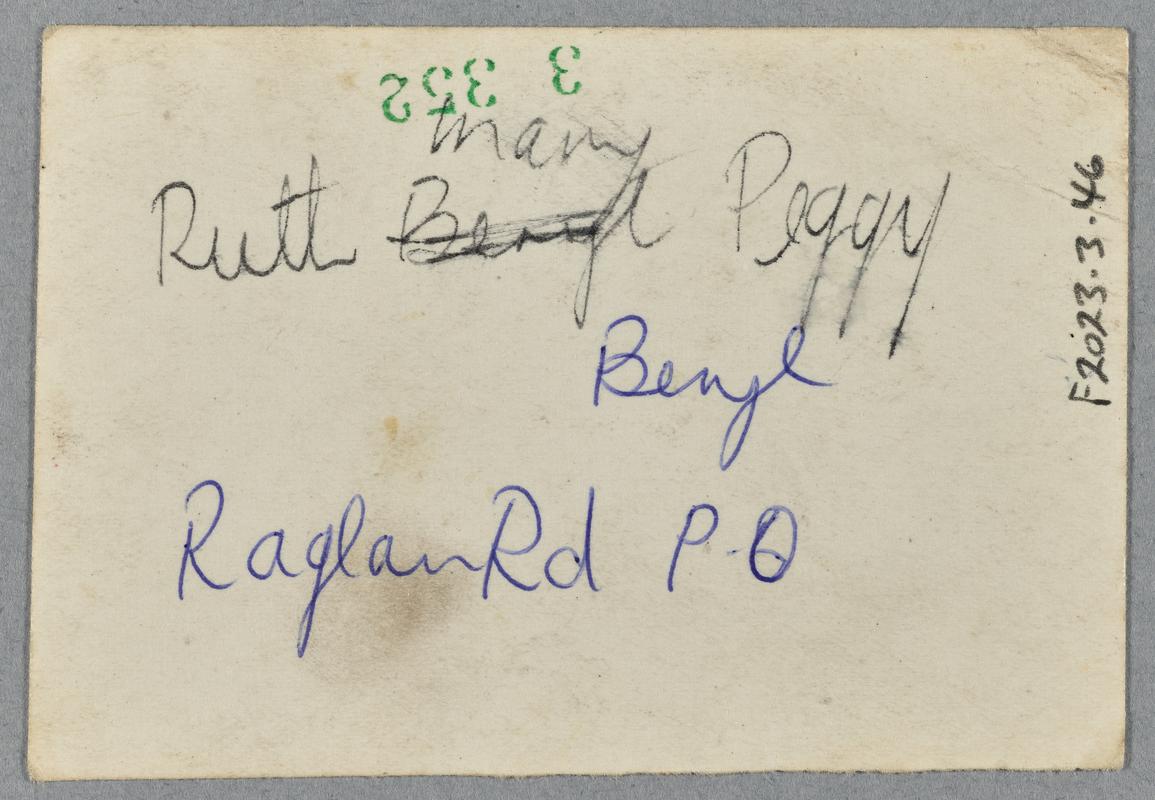 Mary
Ruth Beryl Peggy
Beryl
Raglan Rd P.O
F2023.3.46